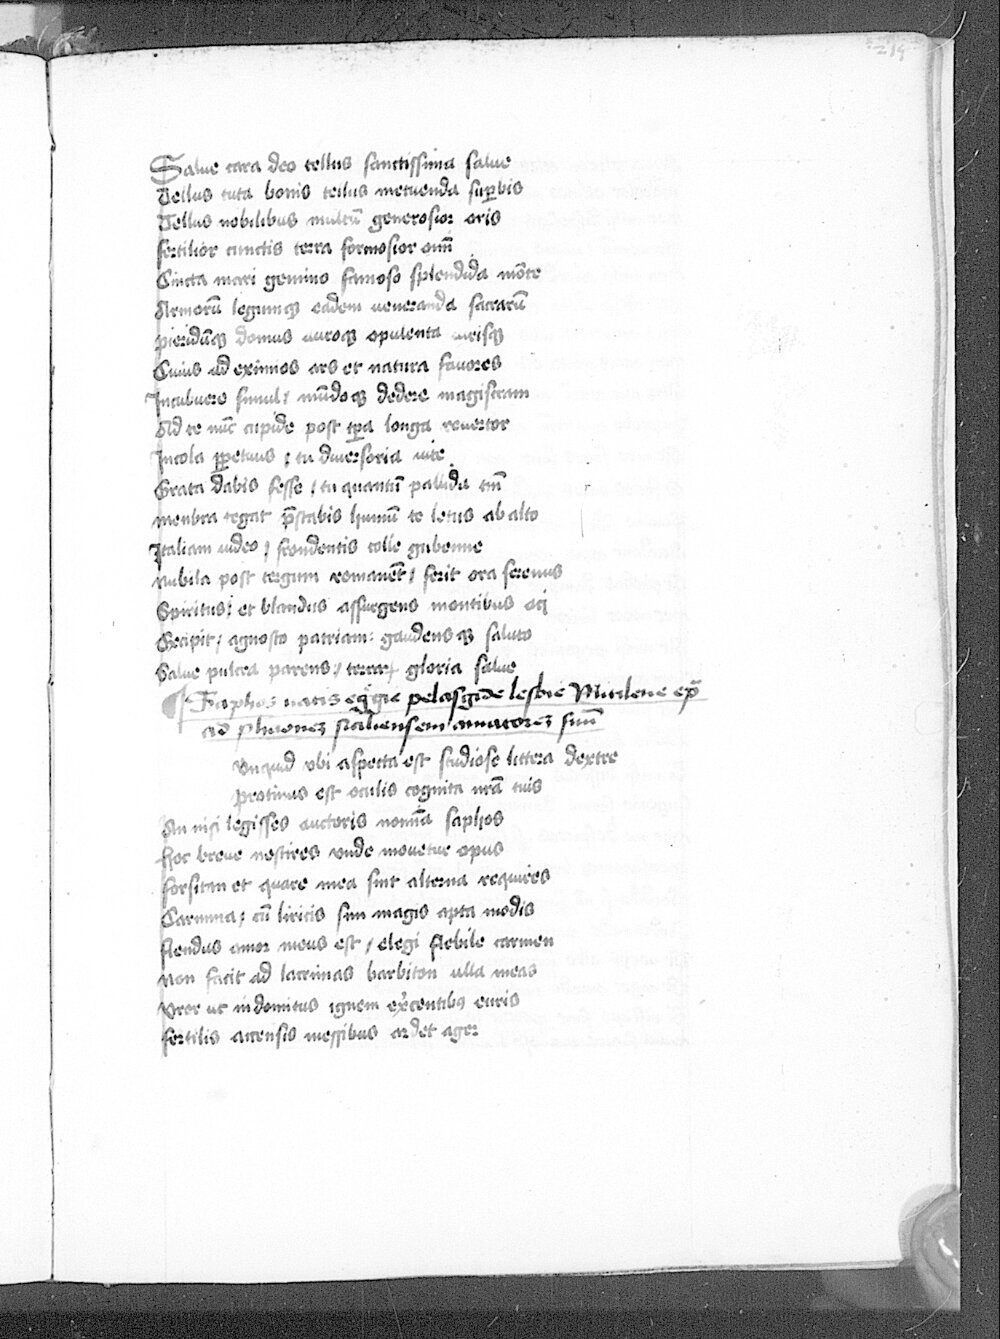 219
Salue cara deo tellus sanctissima salue
Tellus tuta bonis tellus metuenda suꝑbis
Tellus nobilibus multū generosior oris
fertilior cunctis terra formosior oīm
Cincta mari gemino famoso splendida mōte
Armorū legumqꝫ eadem ueneranda sacrarū
pieridūqꝫ domus auroqꝫ opulenta uirisqꝫ
Cuius ad eximios ars et natura fauores
Incubuere simul / mūdoqꝫ dedere magistram
Ad te nūc cupide post tꝑa longa reuertor
Incola ꝑpetuus ; tu diuersoria uite
Grata dabis fesse / tu quantū pallida tm̄
menbra tegat p̄stabis humū te letus ab alto
Italiam uideo / frondentis colle gubenne
nubila post tergum remanēt / ferit ora serenus
Spiritus ; et blandus assurgens montibus
Excipit ; agnosco patriam : gaudensqꝫ saluto
Salue pulcra parens / terraꝝ gloria salue
¶ Saphos uatis egꝛ̄gie pelasgide lesbie Mitilene ep̄
ad phaonez sicliensem amatorez suū
Unquid ubi aspecta est studiose littera dextre
protinus est oculis cognita nr̄a tuis
An nisi legisses auctoris nomīa saphos
Hoc breue nescires unde mouetur opus
forsitan et quare mea sint alterna requires
Carmina ; cū liricis sim magis apta modis
flendus amor meus est / elegi flebile carmen
non facit ad lacrimas barbiton ulla meas
uror ut indomitus ignem ex̄centibꝫ euris
fertilis accensis messibus ardet ager